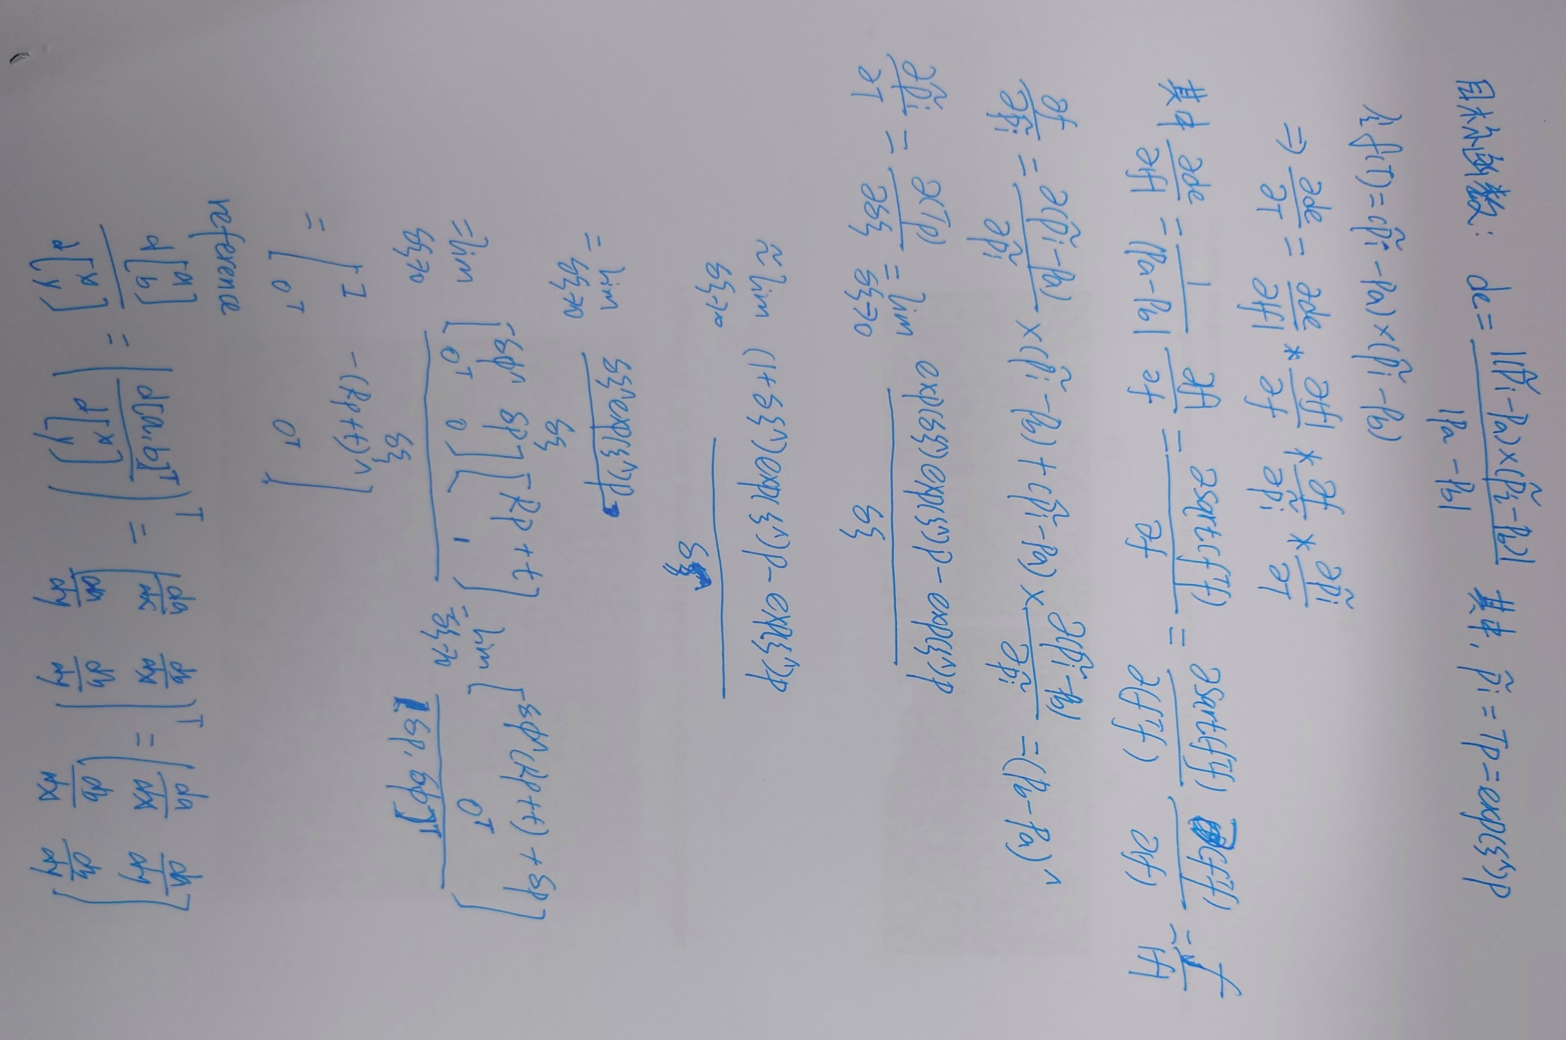 目标函数: de = |(p̃i - pa)×(p̃i - pb)| / |pa - pb| 其中, p̃i = Tp = exp(ξ^)p
f(T) = (p̃i - pa)×(p̃i - pb)
⇒ ∂de/∂T = ∂de/∂|f| * ∂|f|/∂f * ∂f/∂p̃i * ∂p̃i/∂T
其中 ∂de/∂|f| = 1/|pa - pb| ∂|f|/∂f = ∂sqrt(fᵀf)/∂f = ∂sqrt(fᵀf)/∂(fᵀf) ∂(fᵀf)/∂(f) = f/|f|
∂f/∂p̃i = ∂(p̃i - pa)/∂p̃i ×(p̃i - pb) + (p̃i - pa)× ∂(p̃i - pb)/∂p̃i = (pb - pa)^
∂p̃i/∂T = ∂Tp/∂δξ = lim δξ→0 (exp(δξ^)exp(ξ^)p - exp(ξ^)p)/δξ
≈ lim δξ→0 ((1+δξ^)exp(ξ^)p - exp(ξ^)p)/δξ
= lim δξ→0 δξ^exp(ξ^)p/δξ
= lim δξ→0 [δφ^ δρ; 0ᵀ 0][Rp+t; 1]/δξ = lim δξ→0 [δφ^(Rp+t)+δρ; 0ᵀ]/[δρ, δφ]ᵀ
= [I -(Rp+t)^; 0ᵀ 0ᵀ]
reference
d[a; b]/d[x; y] = (d[a, b]ᵀ/d[x; y])ᵀ = [da/dx db/dx; da/dy db/dy]ᵀ = [da/dx da/dy; db/dx db/dy]